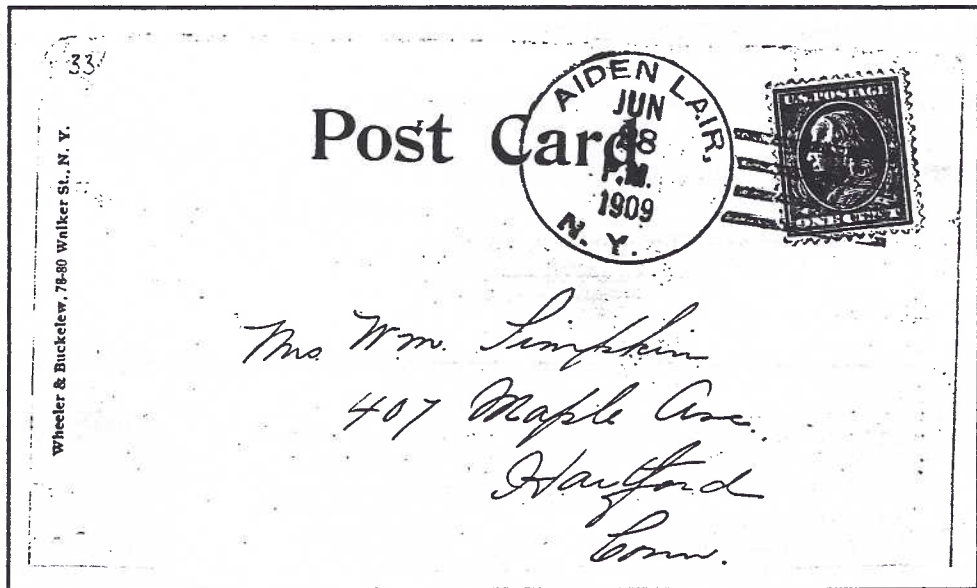 33
Wheeler & Buckelew, 78-80 Walker St., N. Y.
Post Card
AIDEN LAIR.
JUN
28
P.M.
1909
N. Y.
U.S. POSTAGE
ONE CENT
Mrs Wm. Simpkin
407 Maple Ave.
Hartford
Conn.